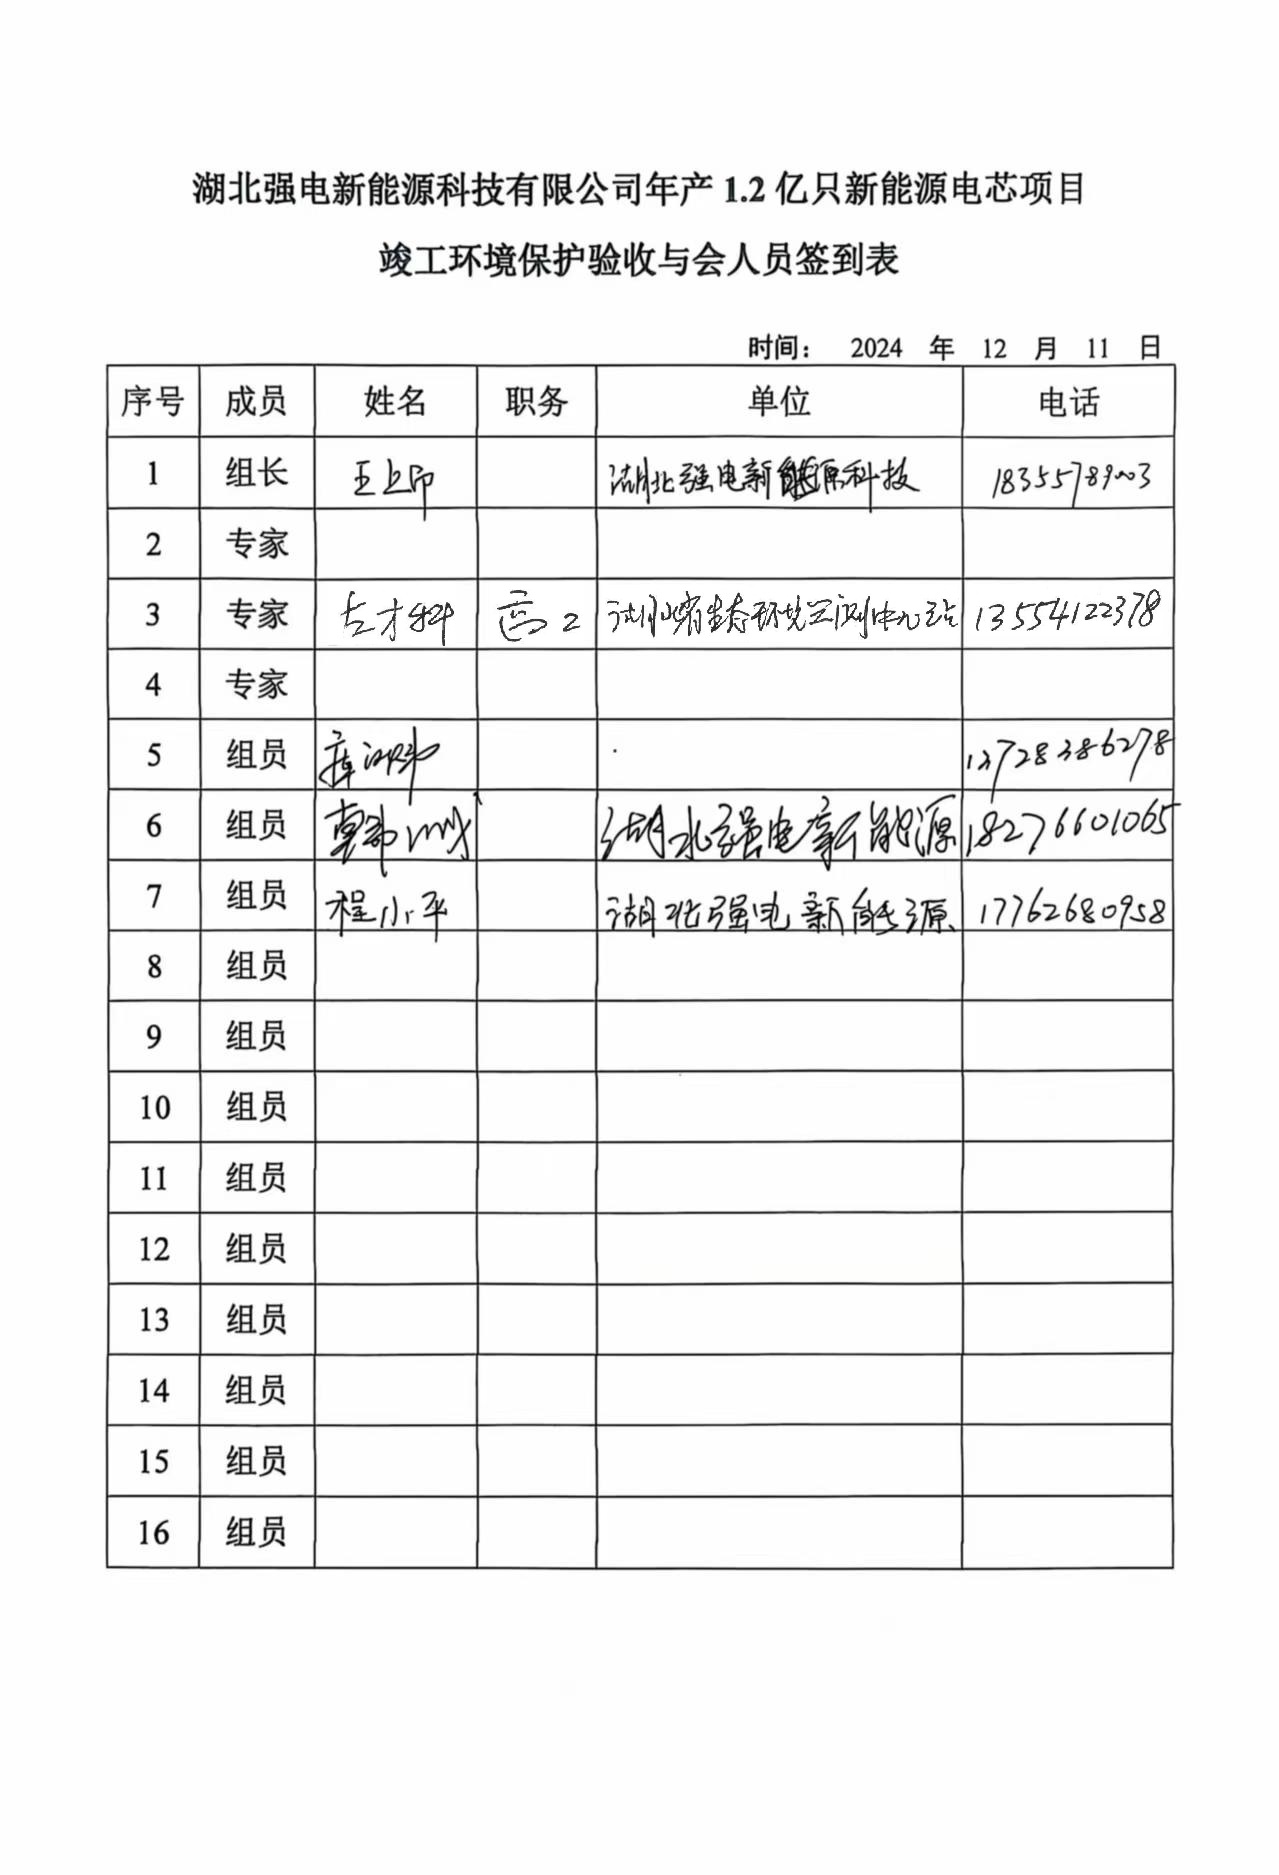 湖北强电新能源科技有限公司年产 1.2 亿只新能源电芯项目
竣工环境保护验收与会人员签到表
时间： 2024 年 12 月 11 日
序号 成员 姓名 职务 单位 电话
1 组长 王上币 湖北强电新能源科技 18355789003
2 专家
3 专家 高工 湖北省生态环境监测中心站 13554122378
4 专家
5 组员 13728386278
6 组员 湖北强电新能源 18276601065
7 组员 程小平 湖北强电新能源 17762680958
8 组员
9 组员
10 组员
11 组员
12 组员
13 组员
14 组员
15 组员
16 组员